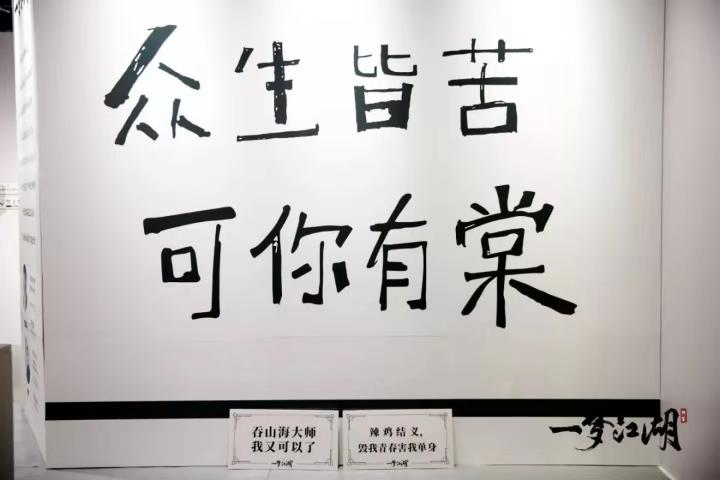 众生皆苦
可你有棠
吞山海大师
我又可以了
一梦江湖
辣鸡结义，
毁我青春害我单身
一梦江湖
一梦江湖